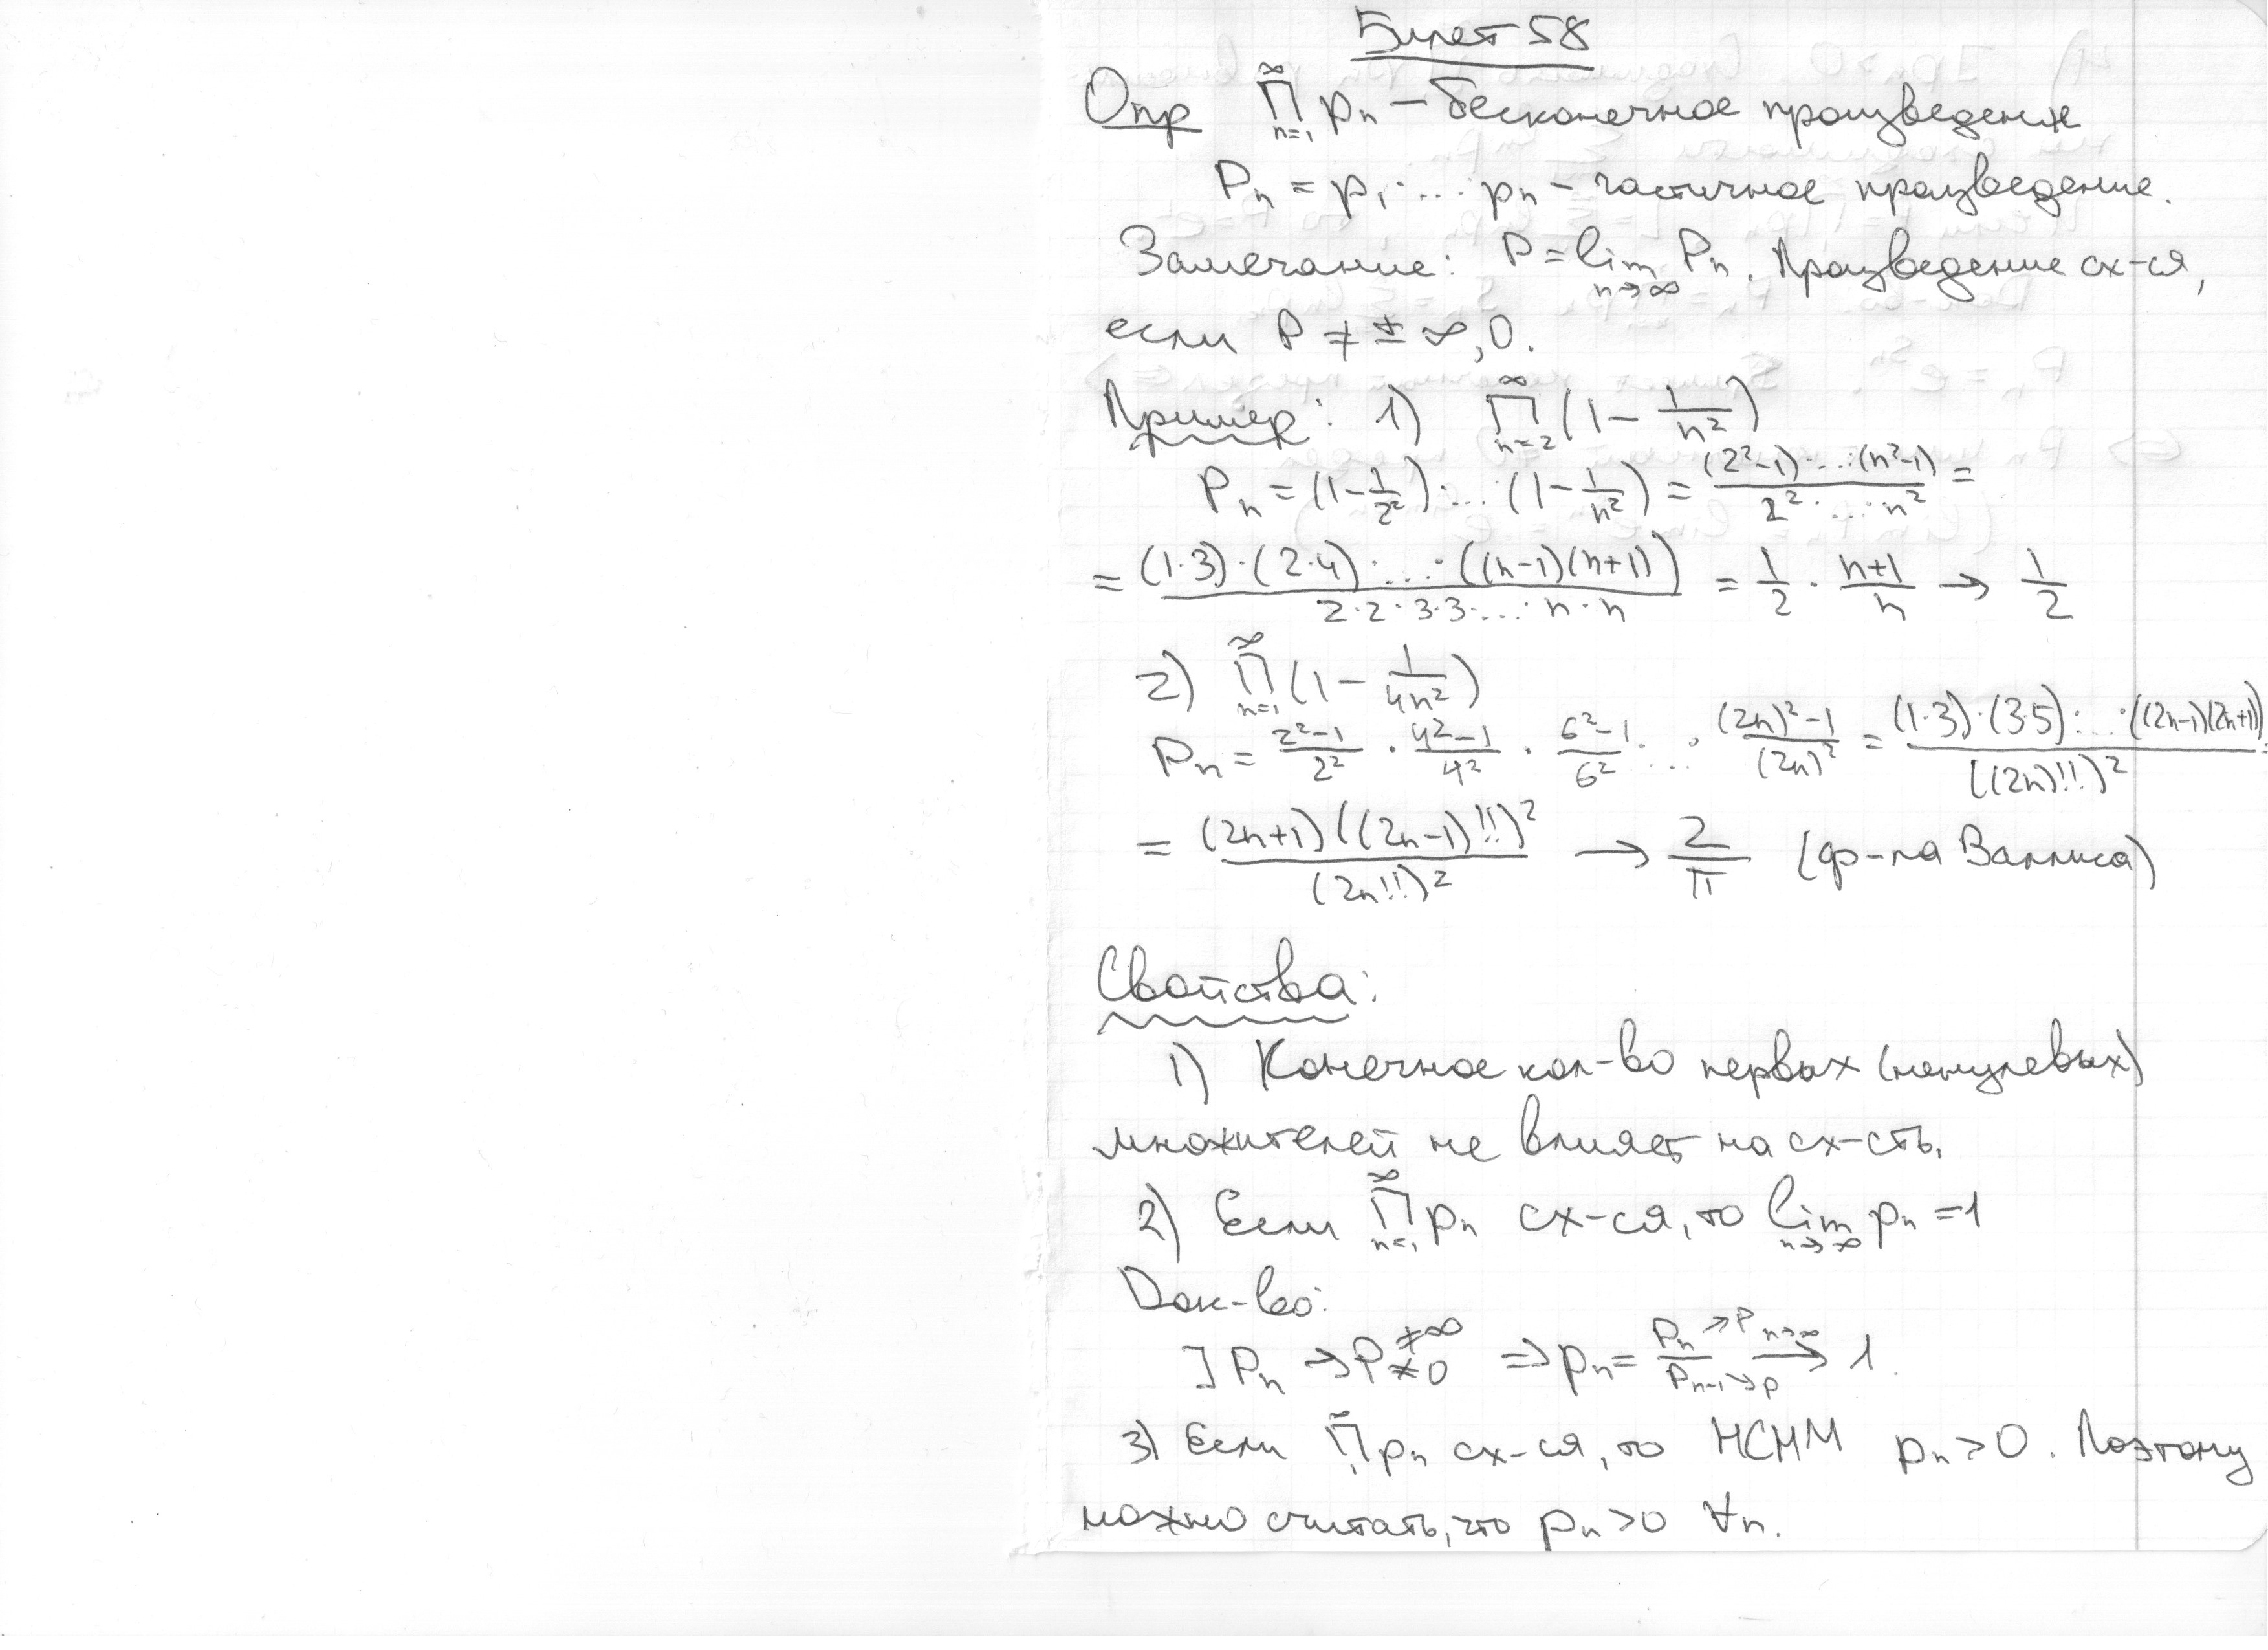 Билет 58
Опр ∞∏n=1 pₙ – бесконечное произведение
Pₙ = p₁·…·pₙ – частичное произведение.
Замечание: P = lim n→∞ Pₙ. Произведение сх-ся,
если P ≠ ± ∞, 0.
Пример: 1) ∞∏n=2 (1 – 1/n²)
Pₙ = (1 – 1/2²)·…·(1 – 1/n²) = (2²-1)·…·(n²-1) / 2²·…·n² =
= (1·3)·(2·4)·…·((n-1)(n+1)) / 2·2·3·3·…·n·n = 1/2 · n+1/n → 1/2
2) ∞∏n=1 (1 – 1/4n²)
Pₙ = 2²-1/2² · 4²-1/4² · 6²-1/6² ·…· (2n)²-1/(2n)² = (1·3)·(3·5)·…·((2n-1)(2n+1)) / ((2n)!!)² =
= (2n+1)((2n-1)!!)² / (2n!!)² → 2/π (ф-ла Валлиса)
Свойства:
1) Конечное кол-во первых (ненулевых)
множителей не влияет на сх-сть.
2) Если ∞∏n=1 pₙ сх-ся, то lim n→∞ pₙ = 1
Док-во:
] Pₙ → P ≠∞ ≠0 ⇒ pₙ = Pₙ→P / Pₙ₋₁→P n→∞ → 1.
3) Если ∞∏1 pₙ сх-ся, то НСНМ pₙ > 0. Поэтому
можно считать, что pₙ > 0 ∀n.